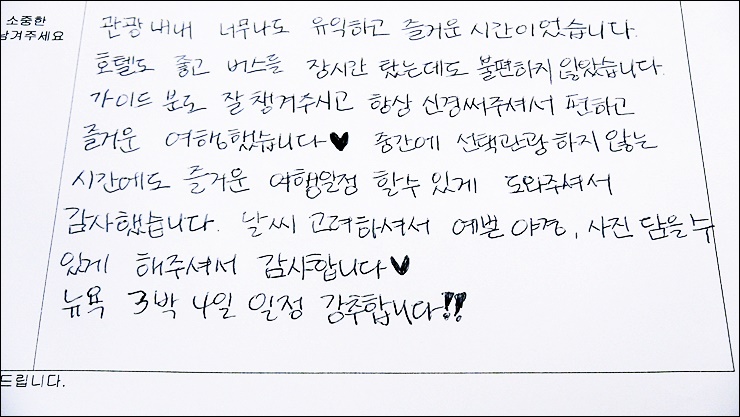 소중한
남겨주세요
관광 내내 너무나도 유익하고 즐거운 시간이었습니다.
호텔도 좋고 버스를 장시간 탔는데도 불편하지 않았습니다.
가이드 분도 잘 챙겨주시고 항상 신경써주셔서 편하고
즐거운 여행했습니다♥ 중간에 선택관광 하지 않는
시간에도 즐거운 여행일정 할수 있게 도와주셔서
감사했습니다. 날씨 고려하셔서 예쁜 야경, 사진 담을수
있게 해주셔서 감사합니다♥
뉴욕 3박 4일 일정 강추합니다!!
드립니다.